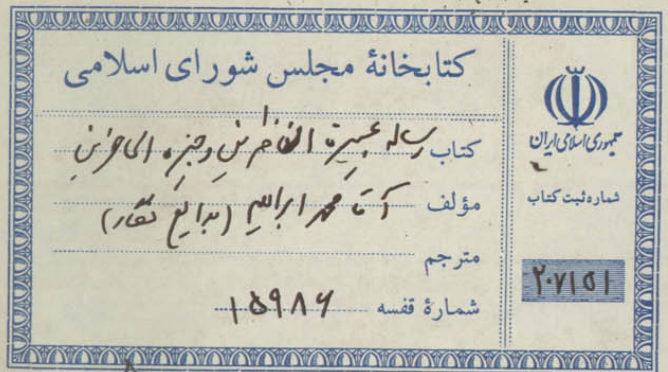 کتابخانهٔ مجلس شورای اسلامی
کتاب رساله عبرة الناظرین و عبرة الحاضرین
مؤلف آقا محمد ابراهیم (بدایع نگار)
مترجم
شمارهٔ قفسه ۱۵۹۸۶
جمهوری اسلامی ایران
شماره ثبت کتاب
۲۰۷۱۵۱